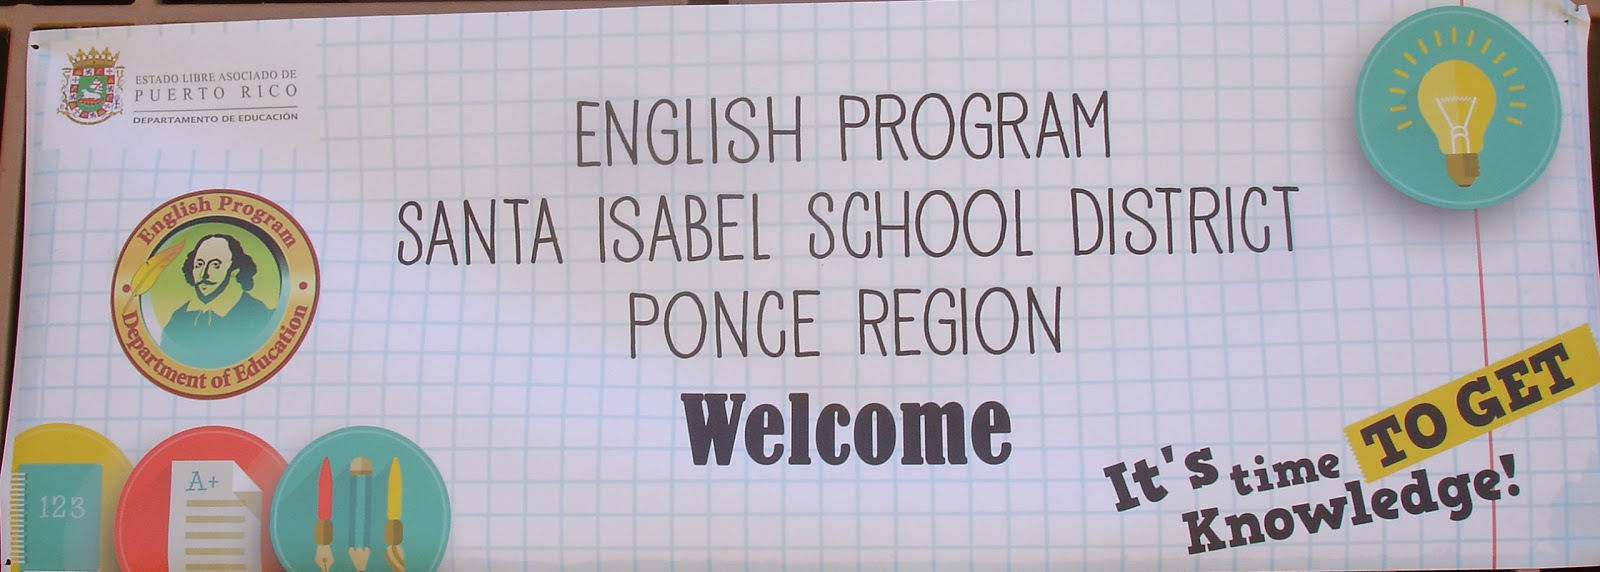 ESTADO LIBRE ASOCIADO DE
PUERTO RICO
DEPARTAMENTO DE EDUCACIÓN
ENGLISH PROGRAM
SANTA ISABEL SCHOOL DISTRICT
PONCE REGION
Welcome
English Program
Department of Education
123
A+
It's time TO GET
Knowledge!